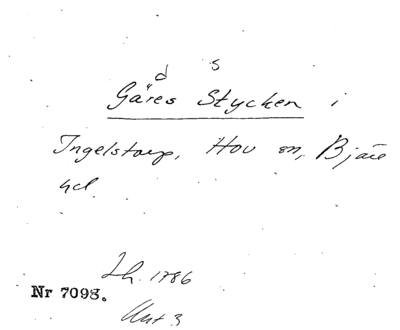 d s
Gäres Stycken i
Ingelstorp, Hov sn, Bjäre
hd
Lh. 1786
Nr 7098.
Akt 3